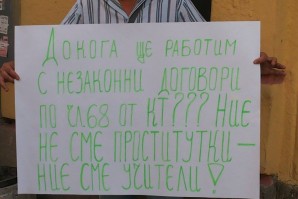 Докога ще работим
с незаконни договори
по чл68 от КТ??? Ние
не сме проститутки —
ние сме учители!